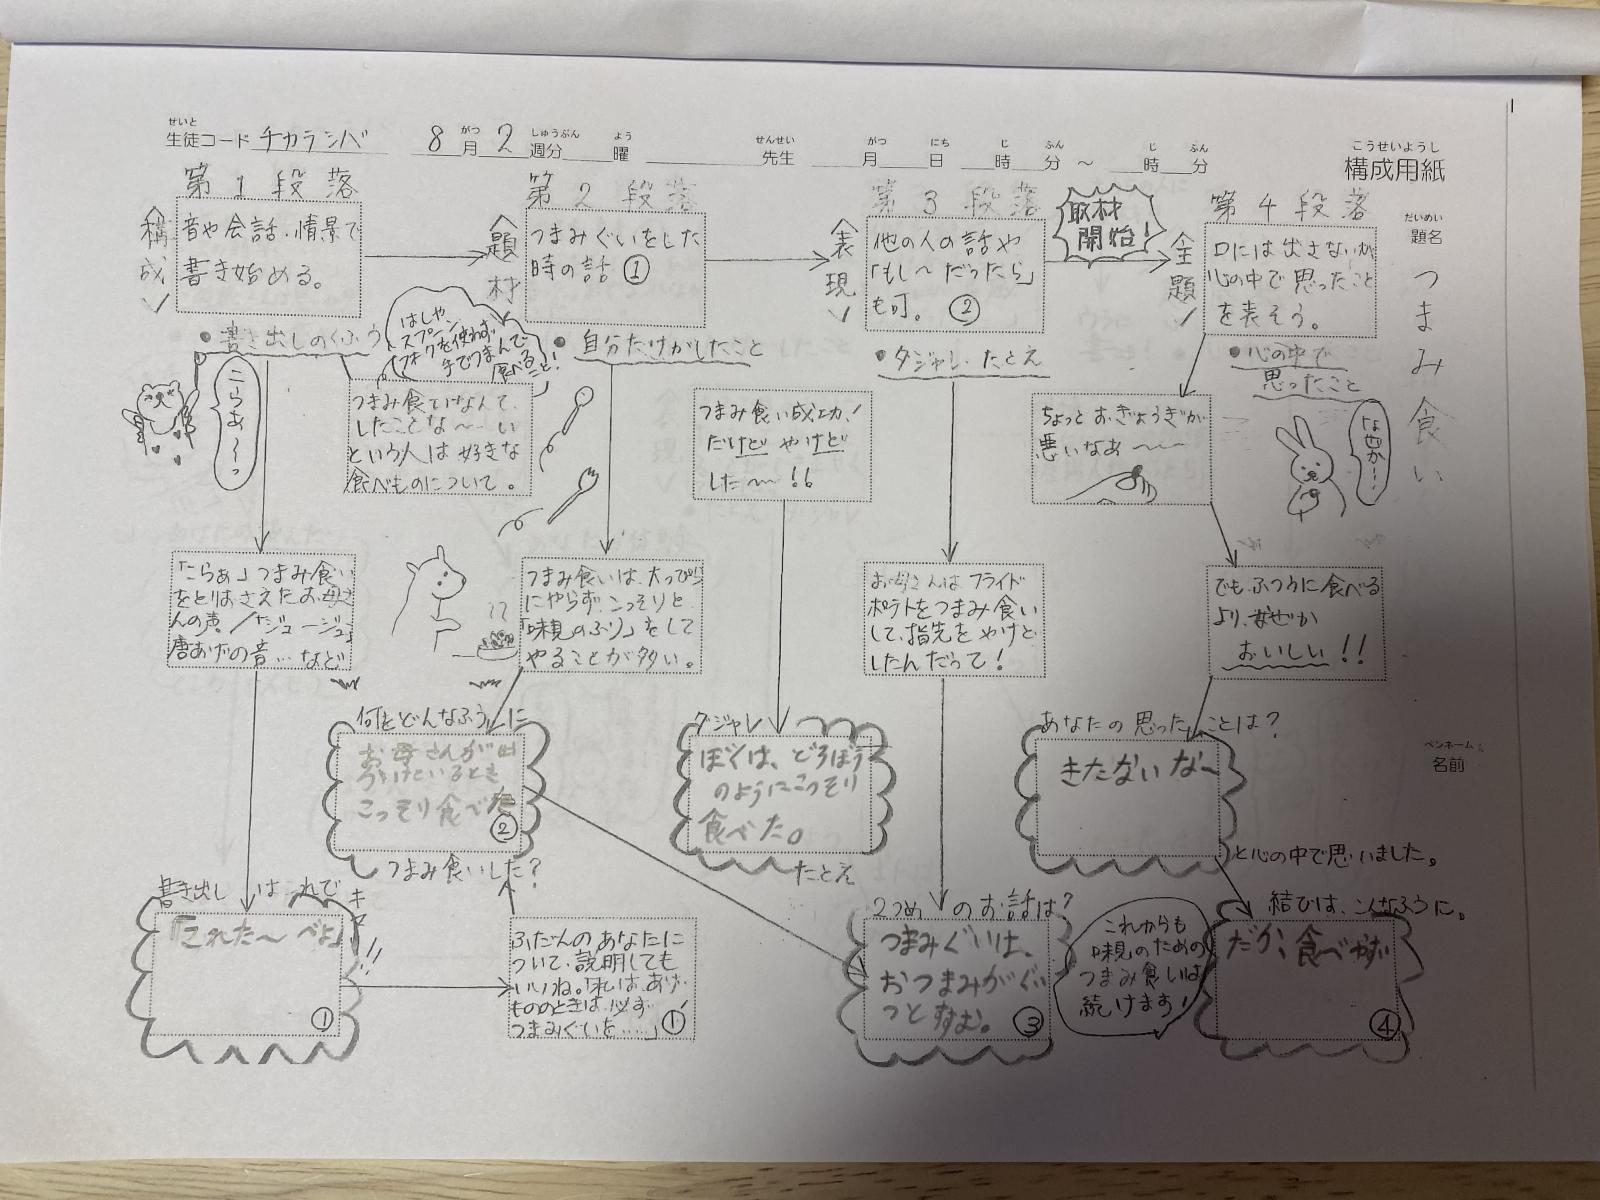 せいと
生徒コード チカラシバ 8月2週分 曜 先生 月 日 時 分 ～ 時 分
がつ しゅうぶん よう せんせい がつ にち じ ふん じ ふん
こうせいようし
構成用紙
だいめい
題名
つまみ食い
ペンネーム
名前
第1段落
＜構成＞
音や会話、情景で
書き始める。
第2段落
＜題材＞
つまみぐいをした
時の話 ①
第3段落
＜表現＞
他の人の話や
「もし～だったら」
も可。 ②
取材
開始！
第4段落
＜主題＞
口には出さないが
心の中で思ったこと
を表そう。
●書き出しのくふう
こらあ～っ
はしや
スプーン、
フォクを使わず
手でつまんで
食べること！
●自分だけがしたこと
●ダジャレ、たとえ
●心の中で
思ったこと
なぜか…
つまみ食いなんて、
したことな～い
という人は好きな
食べものについて。
つまみ食い成功！
だけど やけど
した～!!
ちょっとおぎょうぎが
悪いなあ～
「こらぁ」つまみ食い
をとりおさえたお母さ
んの声／「ジュージュ」
唐あげの音…など
つまみ食いは、大っぴら
にやらず、こっそりと
「味見のふり」をして
やることが多い。
お母さんはフライド
ポテトをつまみ食い
して、指先をやけど
したんだって！
でも、ふつうに食べる
より、なぜか
おいしい!!
何をどんなふうに
お母さんが出
かけているとき
こっそり食べた
②
つまみ食いした？
ダジャレ
ぼくは、どろぼう
のようにこっそり
食べた。
たとえ
あなたの思ったことは？
きたないな～
と心の中で思いました。
書き出しはこれでキマリ!!
①
ふだんのあなたに
ついて、説明しても
いいね。「私は、あげ
もののときは、必ず
つまみぐいを……」
①
2つめのお話は？
つまみぐいは、
おつまみがぐい
っとすすむ。
③
これからも
味見のための
つまみ食いは
続けます！
結びは、こんなふうに。
④